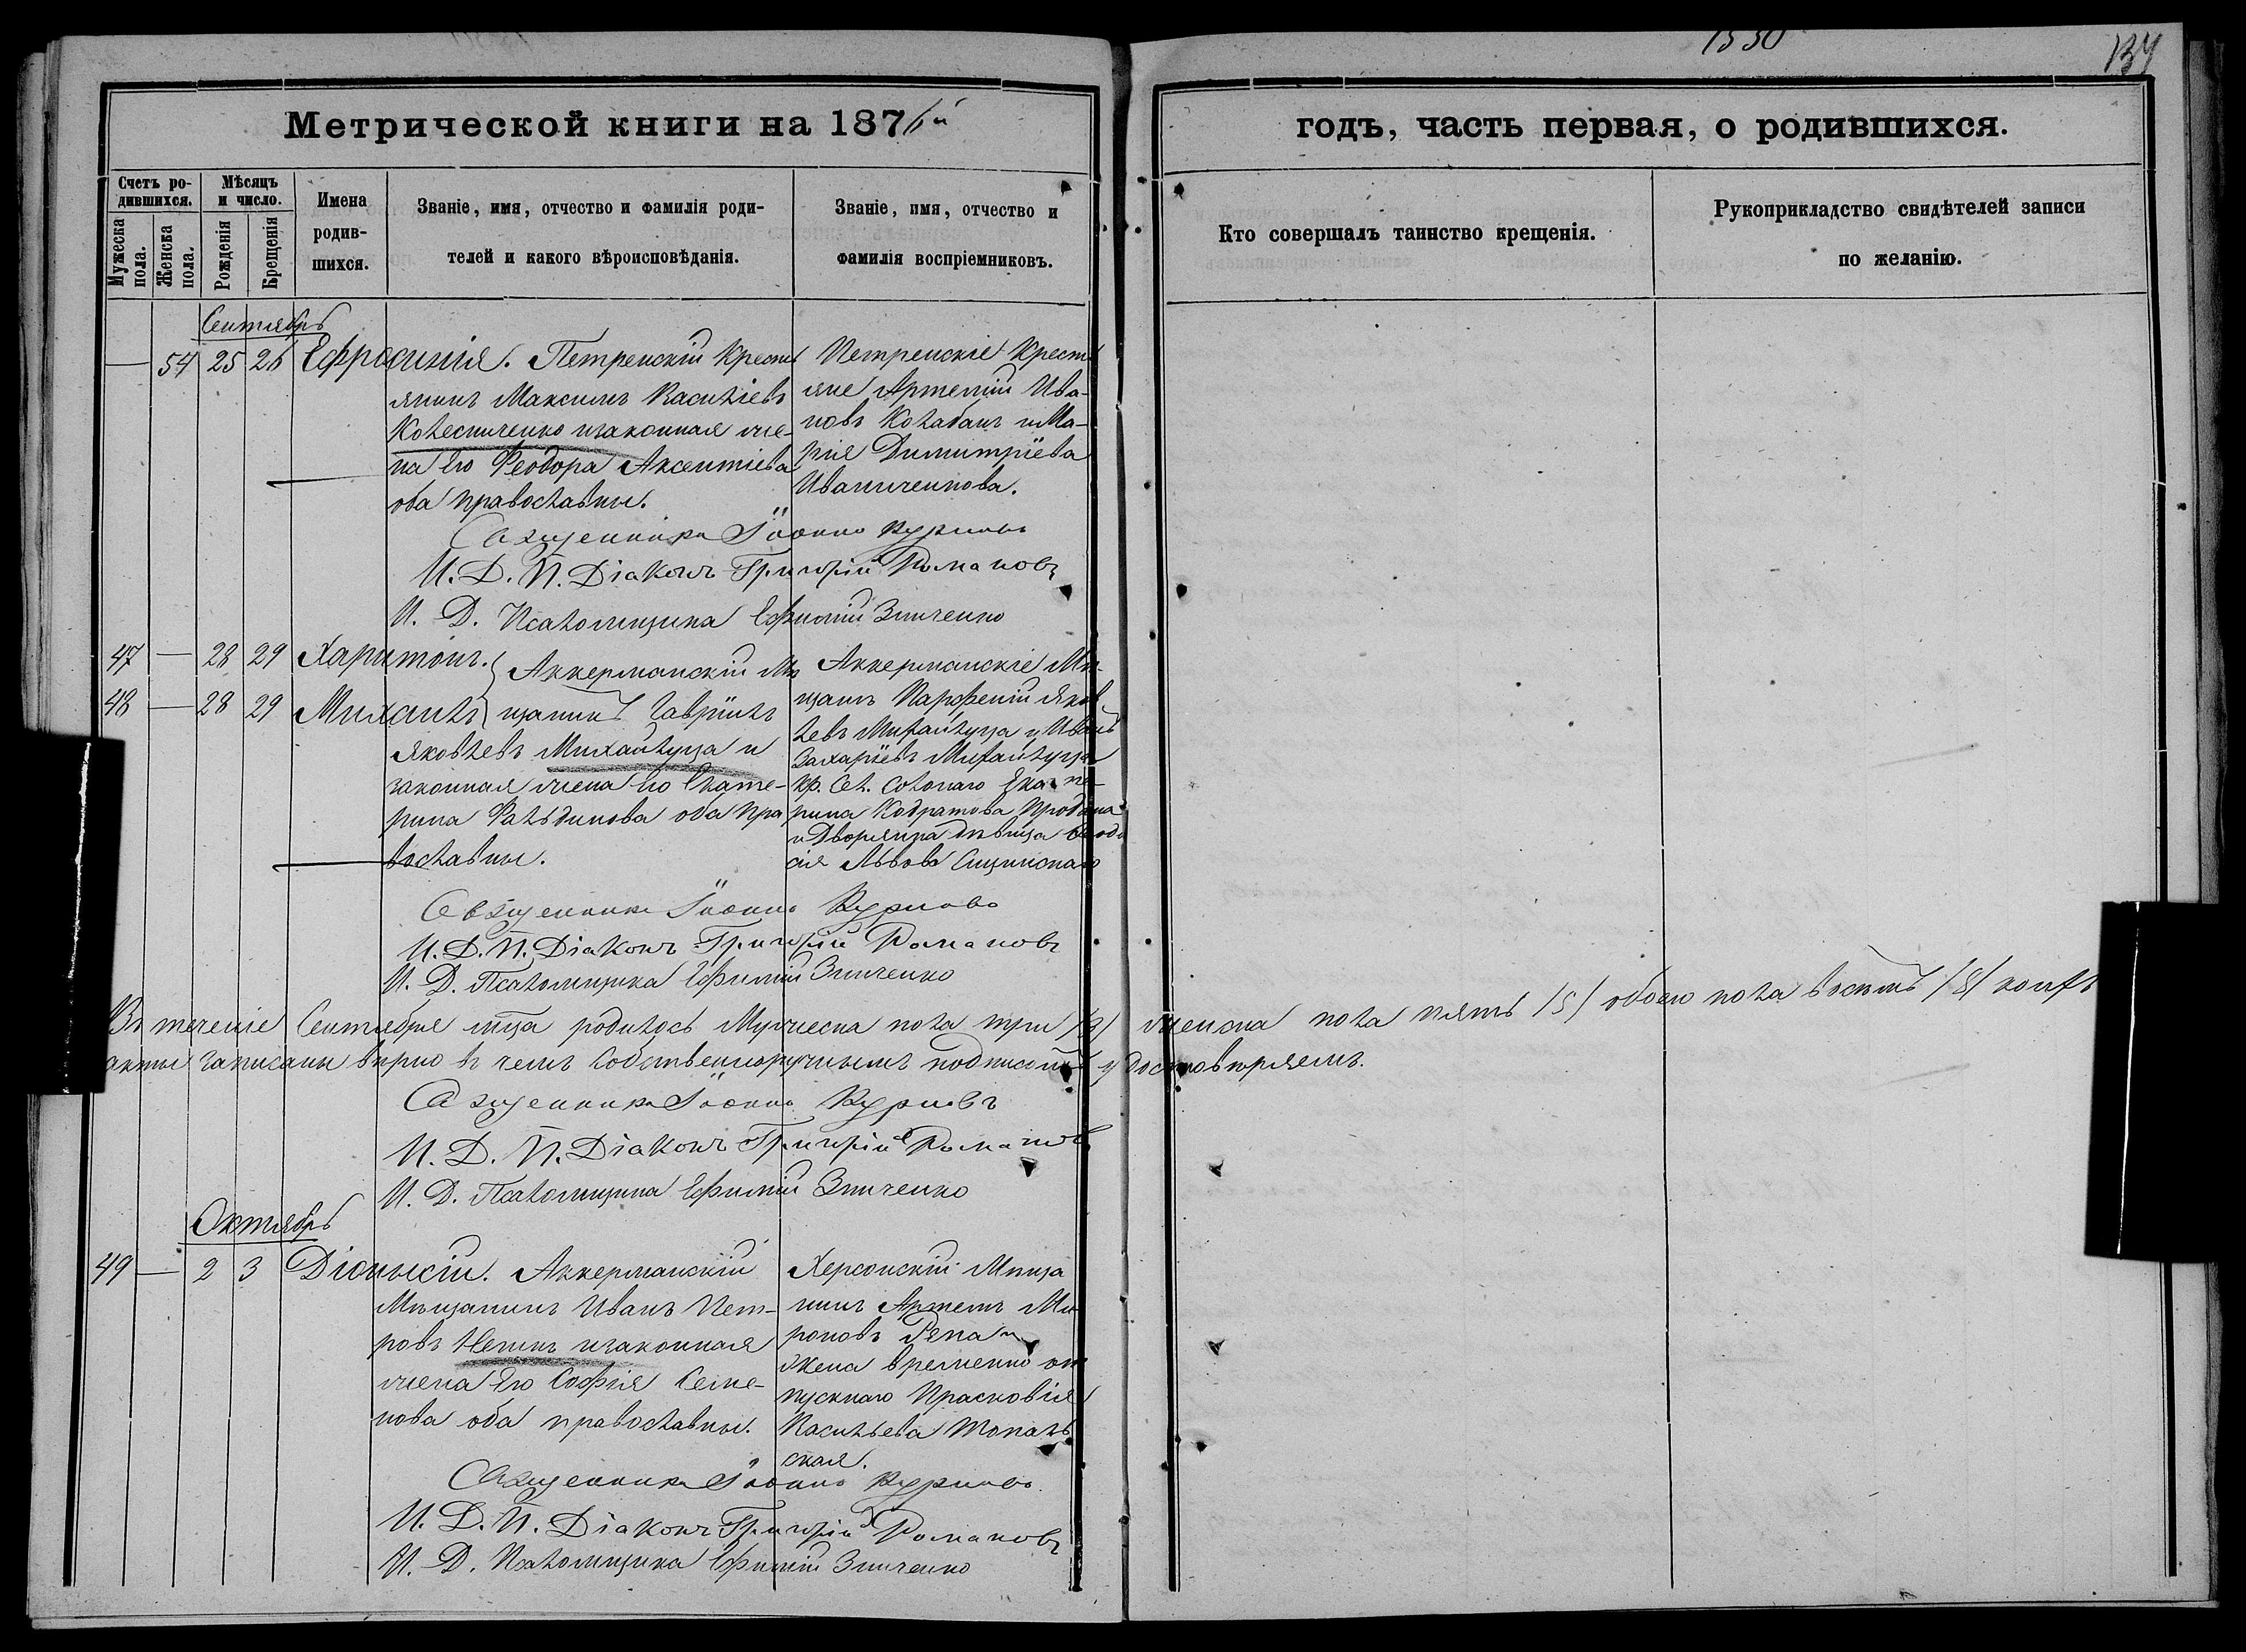 1330
134
Метрической книги на 1876й
годъ, часть первая, о родившихся.
Счетъ родившихся.
Мѣсяцъ и число.
Мужеска пола.
Женска пола.
Рожденія
Крещенія
Имена родившихся.
Званіе, имя, отчество и фамилія роди-
телей и какого вѣроисповѣданія.
Званіе, имя, отчество и
фамилія воспріемниковъ.
Кто совершалъ таинство крещенія.
Рукоприкладство свидѣтелей записи
по желанію.
Сентябрь
— 54 25 26 Ефросинія. Петренскій кресть
янинъ Максимъ Василіевъ
Колесниченко изаконная же-
на его Феодора Аксентіева
оба православны.
Петренскіе Кресть
яне Артемій Ива-
новъ Колабанъ и Ма-
рія Димитріева
Иваниченкова.
Священникъ Іоаннъ Курновъ
И. Д. П. Діаконъ Григорій Романовъ
И. Д. Псаломщика Ефимій Зинченко
47 — 28 29 Харитонъ.
48 — 28 29 Михаилъ
Аккерманскій Мѣ
щанинъ Гавріилъ
Яковлевъ Михайлуца и
законная жена его Екате-
рина Фальдинова оба пра
вославны.
Аккерманскіе Мѣ-
щанъ Парфеній Яков
левъ Михайлуца и Иванъ
Захаріевъ Михайлуца
кр. Сел. Солонаго Екате-
рина Кодратова
и Дворянка дѣвица Феодо
сія Львова
Священникъ Іоаннъ Курновъ
И. Д. П. Діаконъ Григорій Романовъ
И. Д. Псаломщика Ефимій Зинченко
Въ теченіе Сентября мца родилось Мужеска пола три /3/ женска пола пять /5/ обоего пола восемь /8/ коихъ
акты записаны вѣрно въ чемъ собственноручнымъ подписомъ удостовѣряемъ.
Священникъ Іоаннъ Курновъ
И. Д. П. Діаконъ Григорій Романовъ
И. Д. Псаломщика Ефимій Зинченко
Октябрь
49 — 2 3 Діонысій. Аккерманскій
Мѣщанинъ Иванъ Пет-
ровъ Ненинъ изаконная
жена его Софія Семе-
нова оба православны.
Херсонскій Мѣща
нинъ Артемъ Ми
роновъ Рѣпа и
жена временно от
пускнаго Прасковія
Васильева Топаль
ская.
Священникъ Іоаннъ Курновъ
И. Д. П. Діаконъ Григорій Романовъ
И. Д. Псаломщика Ефимій Зинченко